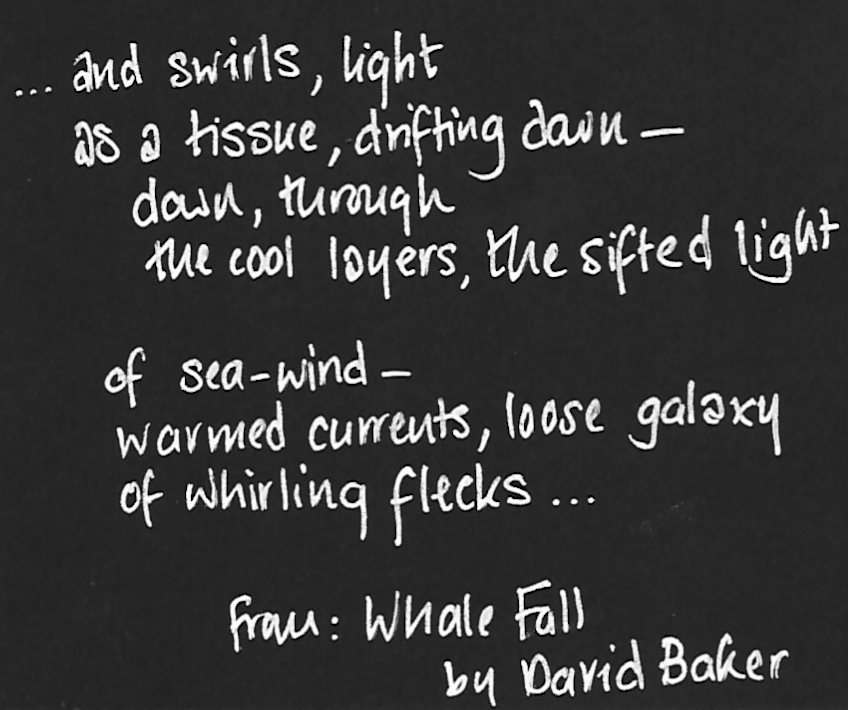 ... and swirls, light
as a tissue, drifting down —
down, through
the cool layers, the sifted light
of sea-wind —
warmed currents, loose galaxy
of whirling flecks ...
from: Whale Fall
by David Baker